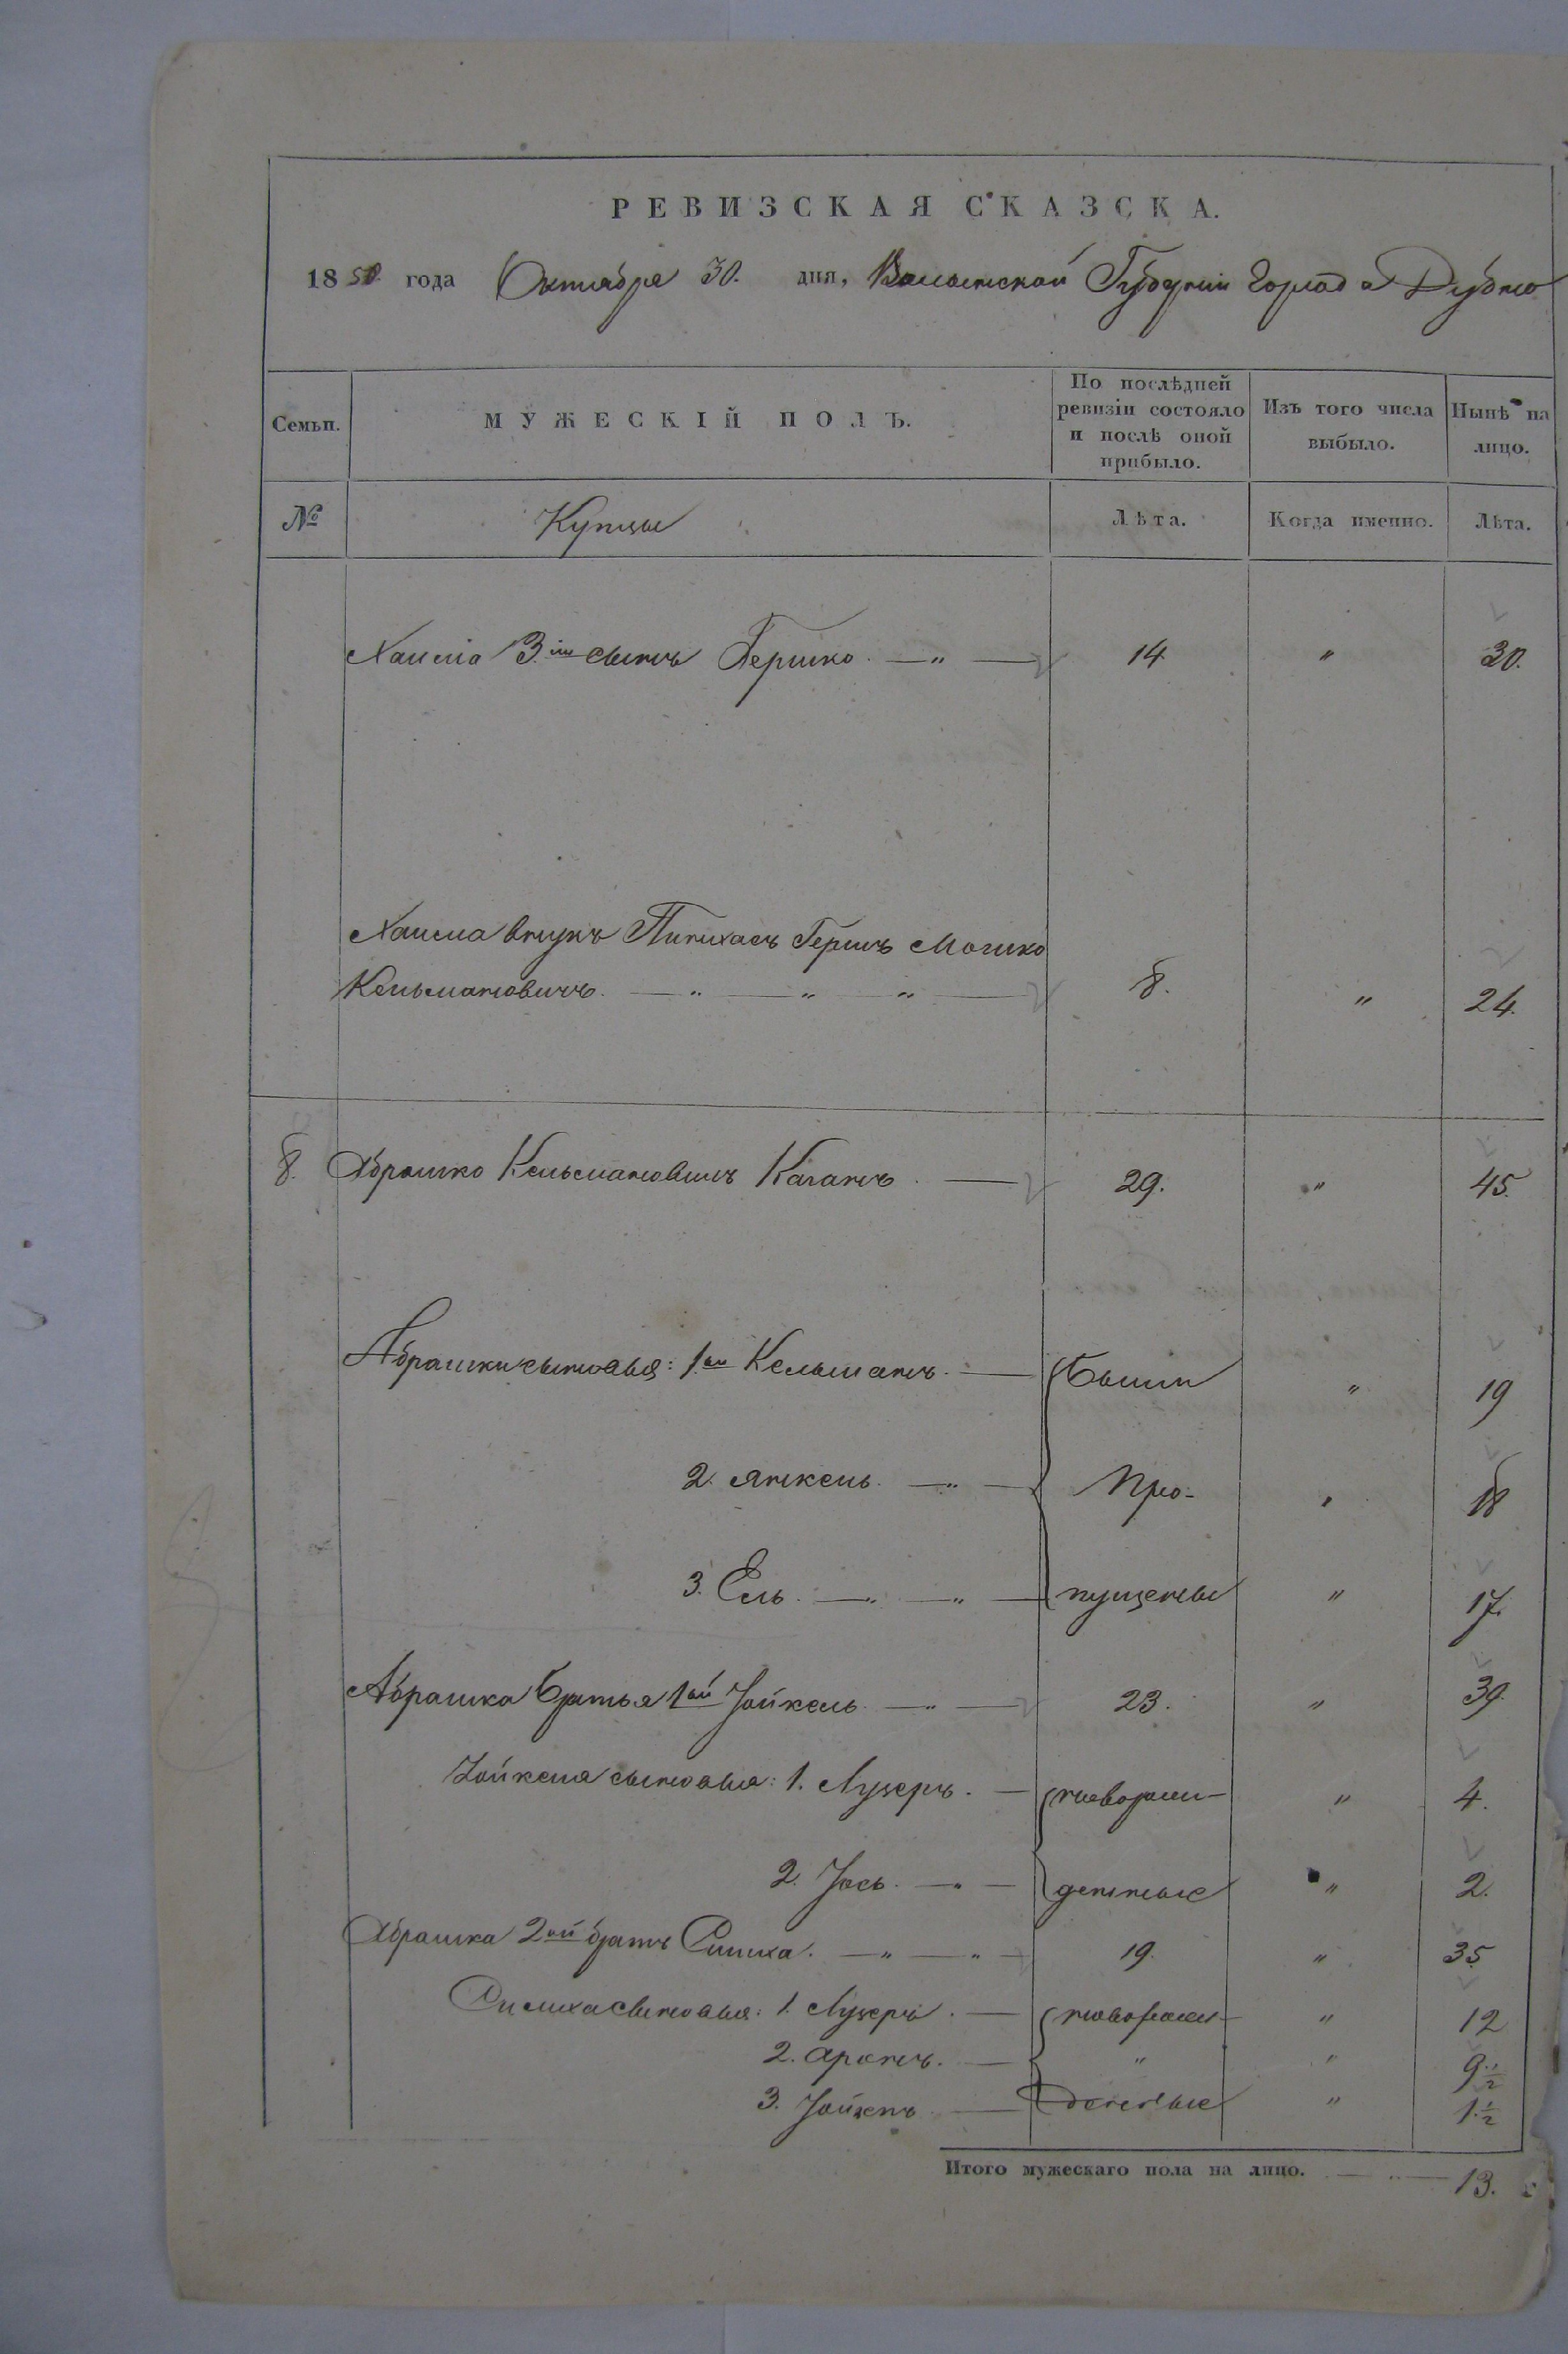 РЕВИЗСКАЯ СКАЗСКА.
1850 года Октября 30. дня, Волынской Губернии Города Дубно
Семьи. МУЖЕСКІЙ ПОЛЪ. По послѣдней ревизіи состояло и послѣ оной прибыло. Изъ того числа выбыло. Нынѣ на лицо.
№ Купцы Лѣта. Когда именно. Лѣта.
Хаима 3ій сынъ Гершко — " — 14 " 30.
Хаима внукъ Пинхасъ Гершъ Мошко
Кельмановичъ. — " — " " — 8. " 24.
8. Абрашко Кельмановичъ Каганъ — 29. " 45.
Абрашки сыновья: 1ый Кельманъ. — Были " 19
2. Янкель. — " — Про- " 18
3. Ель. — " — " — пущены " 17.
Абрашка братья 1ый Іойкель — " — 23. " 39.
Іойкеля сыновья: 1. Лузеръ. — новорож- " 4.
2. Іось. — " — денные " 2.
Абрашка 2ой братъ Симха. — " — " — 19. " 35
Симха сыновья: 1. Лузеръ. — новорож- " 12
2. Аронъ. — " " 9 1/2
3. — денные " 1 1/2
Итого мужескаго пола на лицо. — " — 13.